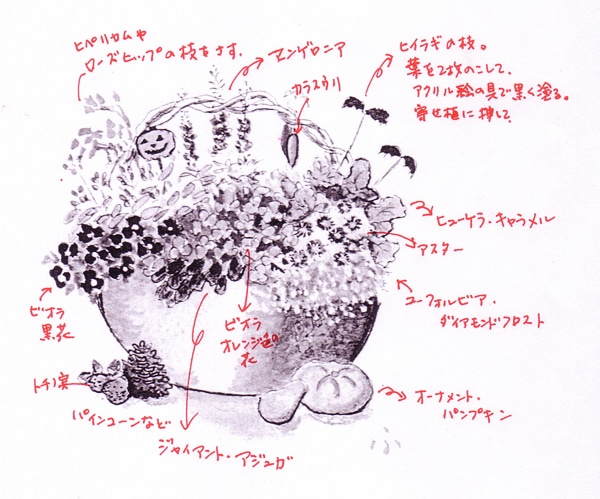 ヒペリカムや
ローズヒップの枝をさす.
アンゲロニア
カラスウリ
ヒイラギの枝。
葉を2枚のこして、
アクリル絵の具で黒く塗る。
寄せ植に挿して
ヒューケラ・キャラメル
アスター
ユーフォルビア・
ダイアモンドフロスト
ビオラ
黒花
ビオラ
オレンジ色の
花
トチノ実
パインコーンなど
ジャイアント・アジュガ
オーナメント・
パンプキン